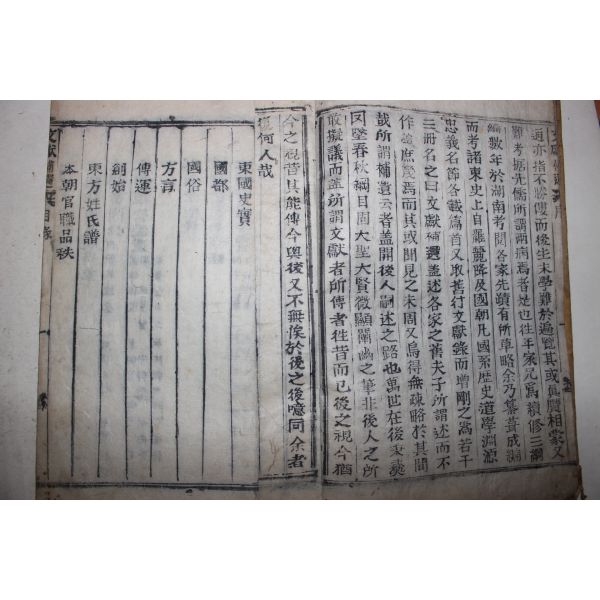 通亦指不勝僂而後生末學難於遍覽其或眞贋相蒙又
難考据先儒所謂兩病焉者是也往年家兄爲續修三綱
編數年於湖南考閱各家先蹟有所草略余乃纂輯成編
而考諸東史上自羅麗以及國朝凡國系歷史道學淵源
忠義名節各載篇首又取舊行文獻錄而增刪之爲若干
三冊名之曰文獻補遺盖述各家之舊夫子所謂述而不
作遺庶幾焉而其或聞見之未周又烏得無疎略於其間
哉所謂補遺云者盖開後人嗣述之路也萬世在後
因墜春秋綱目周大聖大賢微顯闡幽之筆非後人之所
敢擬議而盖所謂文獻者所傳者徃昔而已後之視今猶
今之視昔其能傳今與後又不無俟於後之後噫同余者
何人哉
文獻補遺 目錄
東國史實
國都
國俗
方言
傳運
創始
東方姓氏譜
本朝官職品秩